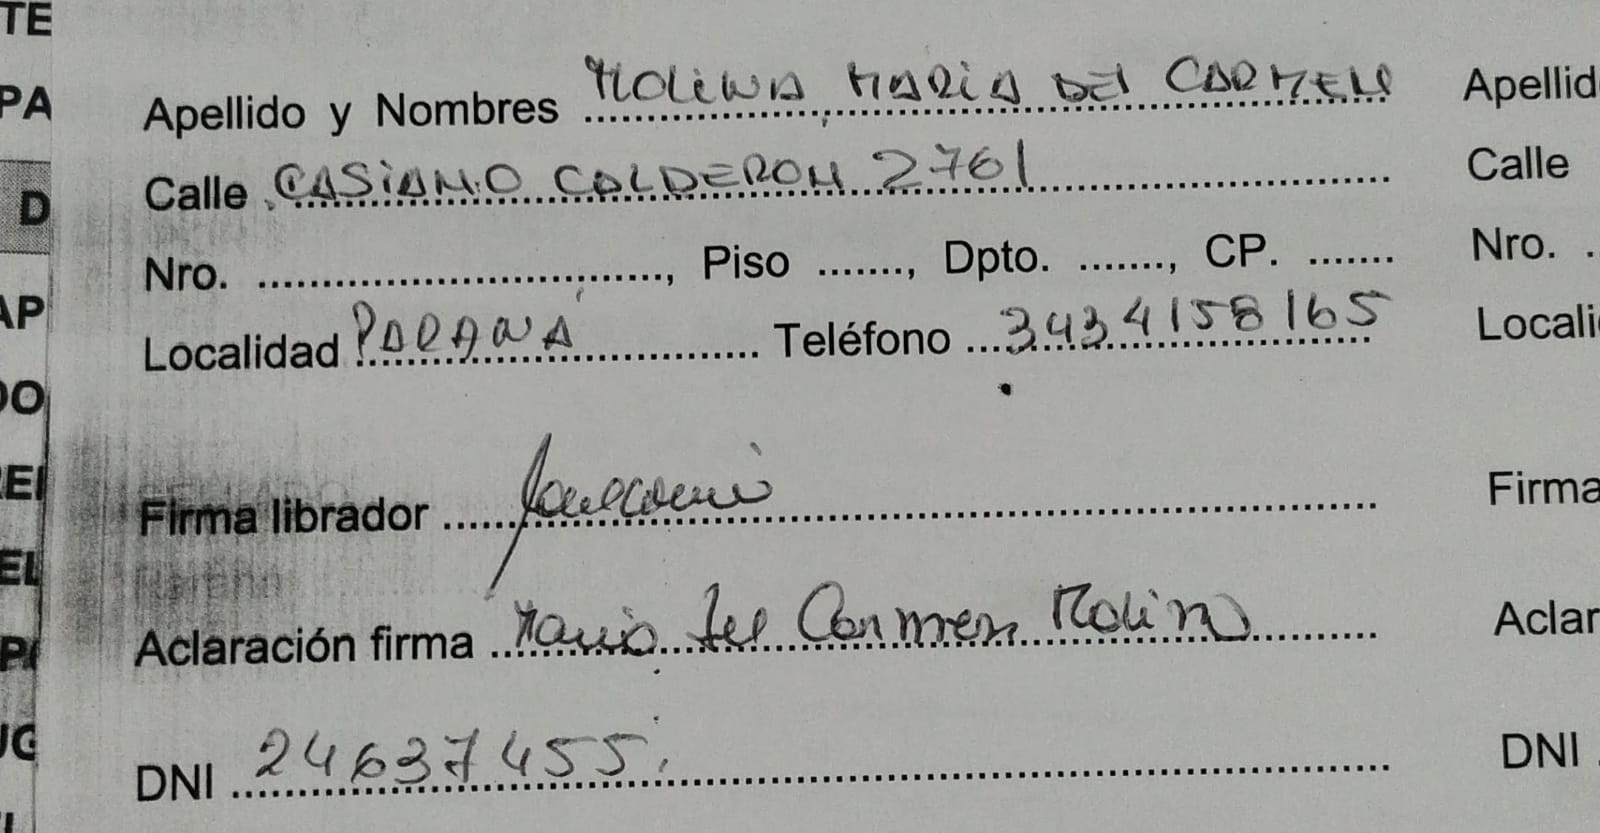 TE
PA
D
AP
DO
EL
Apellido y Nombres MOLINA MARIA DEL CARMEN
Calle CASIANO CALDERON 2761
Nro. ............................, Piso ......., Dpto. ......., CP. .......
Localidad PARANÁ Teléfono 3434158165
Firma librador
Aclaración firma Maria del Carmen Molina
DNI 24637455
Apellid
Calle
Nro.
Locali
Firma
Aclar
DNI